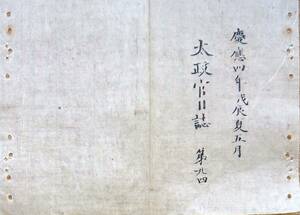 慶應四年戊辰夏五月
太政官日誌 第九四